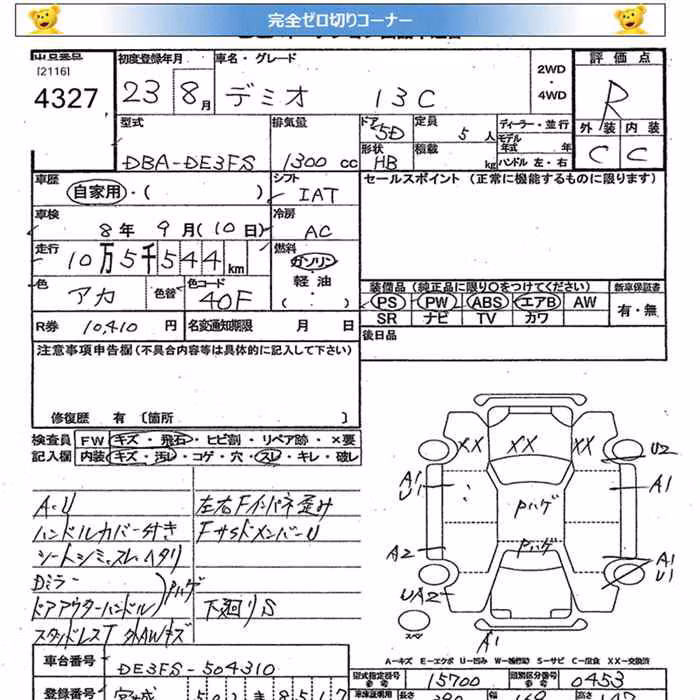 完全ゼロ切りコーナー
出品番号 初度登録年月 車名・グレード 2WD・4WD 評価点
[2116]
4327 23 8月 デミオ 13C R
型式 排気量 ドア 5D 定員 5人 ディーラー・並行 外装 内装
モデル年式 年
DBA-DE3FS 1300cc 形状 HB 積載 kg ハンドル 左・右 C C
車歴 自家用・( ) シフト IAT セールスポイント (正常に機能するものに限ります)
車検 8年 9月(10日) 冷房 AC
走行 10万5千544km 燃料 ガソリン・軽油・( )
色 アカ 色替 色コード 40F
装備品(純正品に限り○をつけてください) 新車保証書
PS PW ABS エアB AW 有・無
SR ナビ TV カワ
R券 10,410円 名変通知期限 月 日 後日品
注意事項申告欄(不具合内容等は具体的に記入して下さい)
修復歴 有 〔箇所 〕
検査員記入欄 FW キズ・飛石・ヒビ割・リペア跡・×要
内装 キズ・汚レ・コゲ・穴・スレ・キレ・破レ
A・U 左右Fインパネ歪み
ハンドルカバー付き FサイドメンバーU
シートシミ、スレ、ヘタリ
Dミラー
ドアアウターハンドル Pハゲ 下廻りS
スタッドレスT 外AWキズ
XX XX XX U2
A1 U1 A1
Pハゲ
Pハゲ
A2 A1 U1
UA2
スペア A1
A-キズ E-エクボ U-凹み W-補修跡 S-サビ C-腐食 XX-交換済
車台番号 DE3FS-504310 型式指定番号 15700 類別区分番号 0453
登録番号 宮城 501